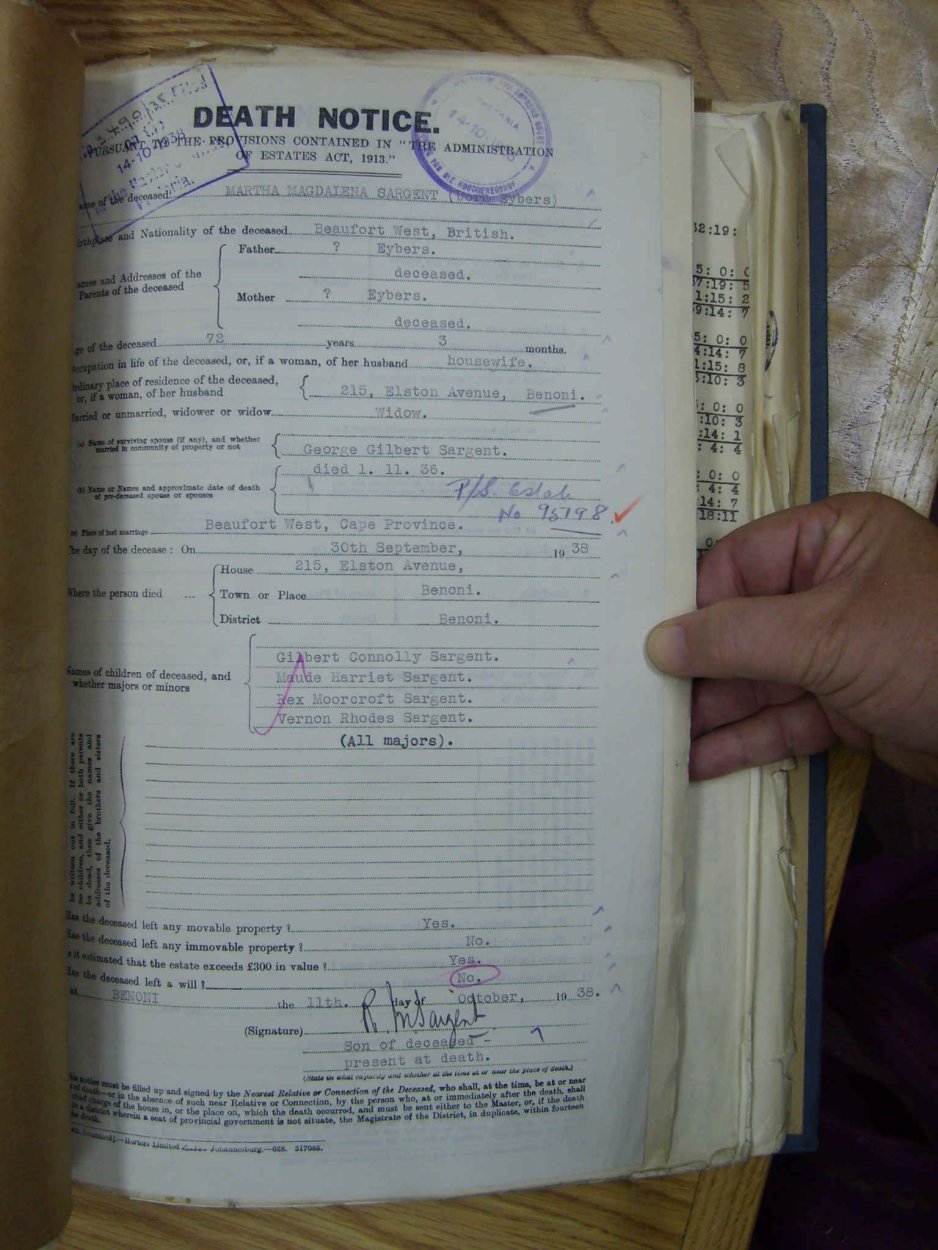 DEATH NOTICE.
PURSUANT TO THE PROVISIONS CONTAINED IN "THE ADMINISTRATION
OF ESTATES ACT, 1913."
14-10-1938
Pretoria.
14-10-1938
ame of the deceased MARTHA MAGDALENA SARGENT (born Eybers)
irthplace and Nationality of the deceased Beaufort West, British.
ames and Addresses of the
Parents of the deceased
Father ? Eybers.
deceased.
Mother ? Eybers.
deceased.
ge of the deceased 72 years 3 months.
ccupation in life of the deceased, or, if a woman, of her husband housewife.
rdinary place of residence of the deceased,
or, if a woman, of her husband
215, Elston Avenue, Benoni.
arried or unmarried, widower or widow Widow.
(a) Name of surviving spouse (if any), and whether
married in community of property or not
George Gilbert Sargent.
died 1. 11. 36.
(b) Name or Names and approximate date of death
of pre-deceased spouse or spouses
P/S. Estate
No 95198
(c) Place of last marriage Beaufort West, Cape Province.
he day of the decease : On 30th September, 1938
Where the person died ...
House 215, Elston Avenue,
Town or Place Benoni.
District Benoni.
ames of children of deceased, and
whether majors or minors
Gilbert Connolly Sargent.
Maude Harriet Sargent.
Rex Moorcroft Sargent.
Vernon Rhodes Sargent.
(All majors).
be written out in full. If there are
no children, and either or both parents
be dead, then give the names and
addresses of the brothers and sisters
of the deceased.
as the deceased left any movable property ? Yes.
as the deceased left any immovable property ? No.
s it estimated that the estate exceeds £300 in value ? Yes.
as the deceased left a will ? No.
at BENONI the 11th. day of October, 1938.
(Signature) R. M Sargent
Son of deceased -
present at death.
(State in what capacity and whether at the time at or near the place of death.)
notice must be filled up and signed by the Nearest Relative or Connection of the Deceased, who shall, at the time, be at or near
of death—or in the absence of such near Relative or Connection, by the person who, at or immediately after the death, shall
chief charge of the house in, or the place on, which the death occurred, and must be sent either to the Master, or, if the death
in a district wherein a seat of provincial government is not situate, the Magistrate of the District, in duplicate, within fourteen
the death.
Hortors Limited Johannesburg.—628. 317085.